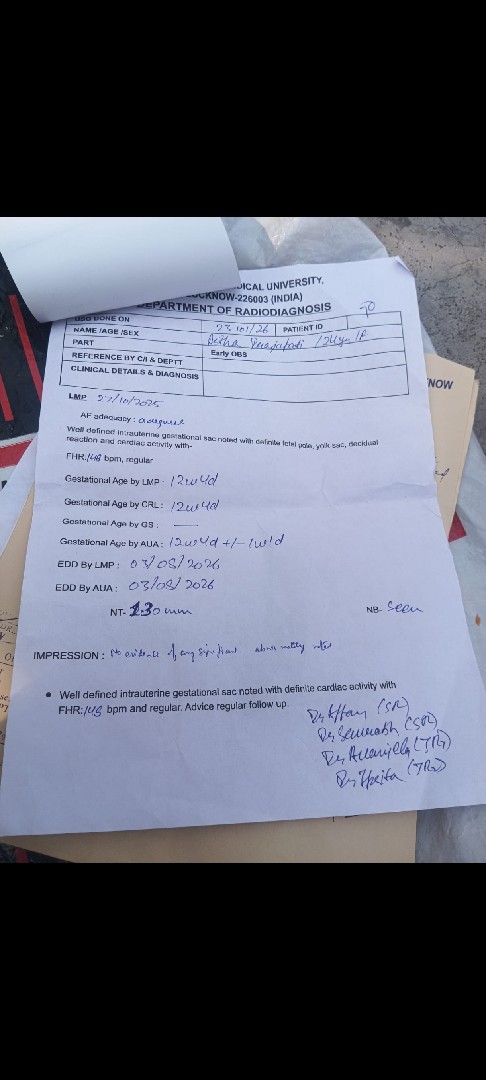 ICAL UNIVERSITY,
UCKNOW-226003 (INDIA)
DEPARTMENT OF RADIODIAGNOSIS
USG DONE ON 23/01/26 PATIENT ID
NAME /AGE /SEX
PART Early OBS
REFERENCE BY C/I & DEPTT
CLINICAL DETAILS & DIAGNOSIS
NOW
LMP 27/10/2025
AF adequacy : adequate
Well defined intrauterine gestational sac noted with definite fetal pole, yolk sac, decidual
reaction and cardiac activity with-
FHR:148 bpm, regular
Gestational Age by LMP - 12w4d
Gestational Age by CRL: 12w4d
Gestational Age by GS : —
Gestational Age by AUA: 12w4d +/- 1w1d
EDD By LMP : 03/08/2026
EDD By AUA : 03/08/2026
NT- 1.30 mm NB- Seen
IMPRESSION : No evidence of any significant abnormality noted
• Well defined intrauterine gestational sac noted with definite cardiac activity with
FHR:148 bpm and regular. Advice regular follow up
(SR)
Dr Saurabh (SR)
(JR)
(JR)